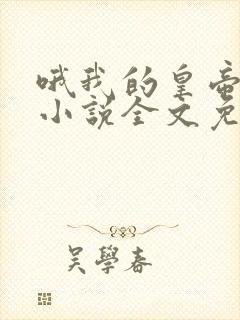 哦我的皇帝
小说全文免
吴學春